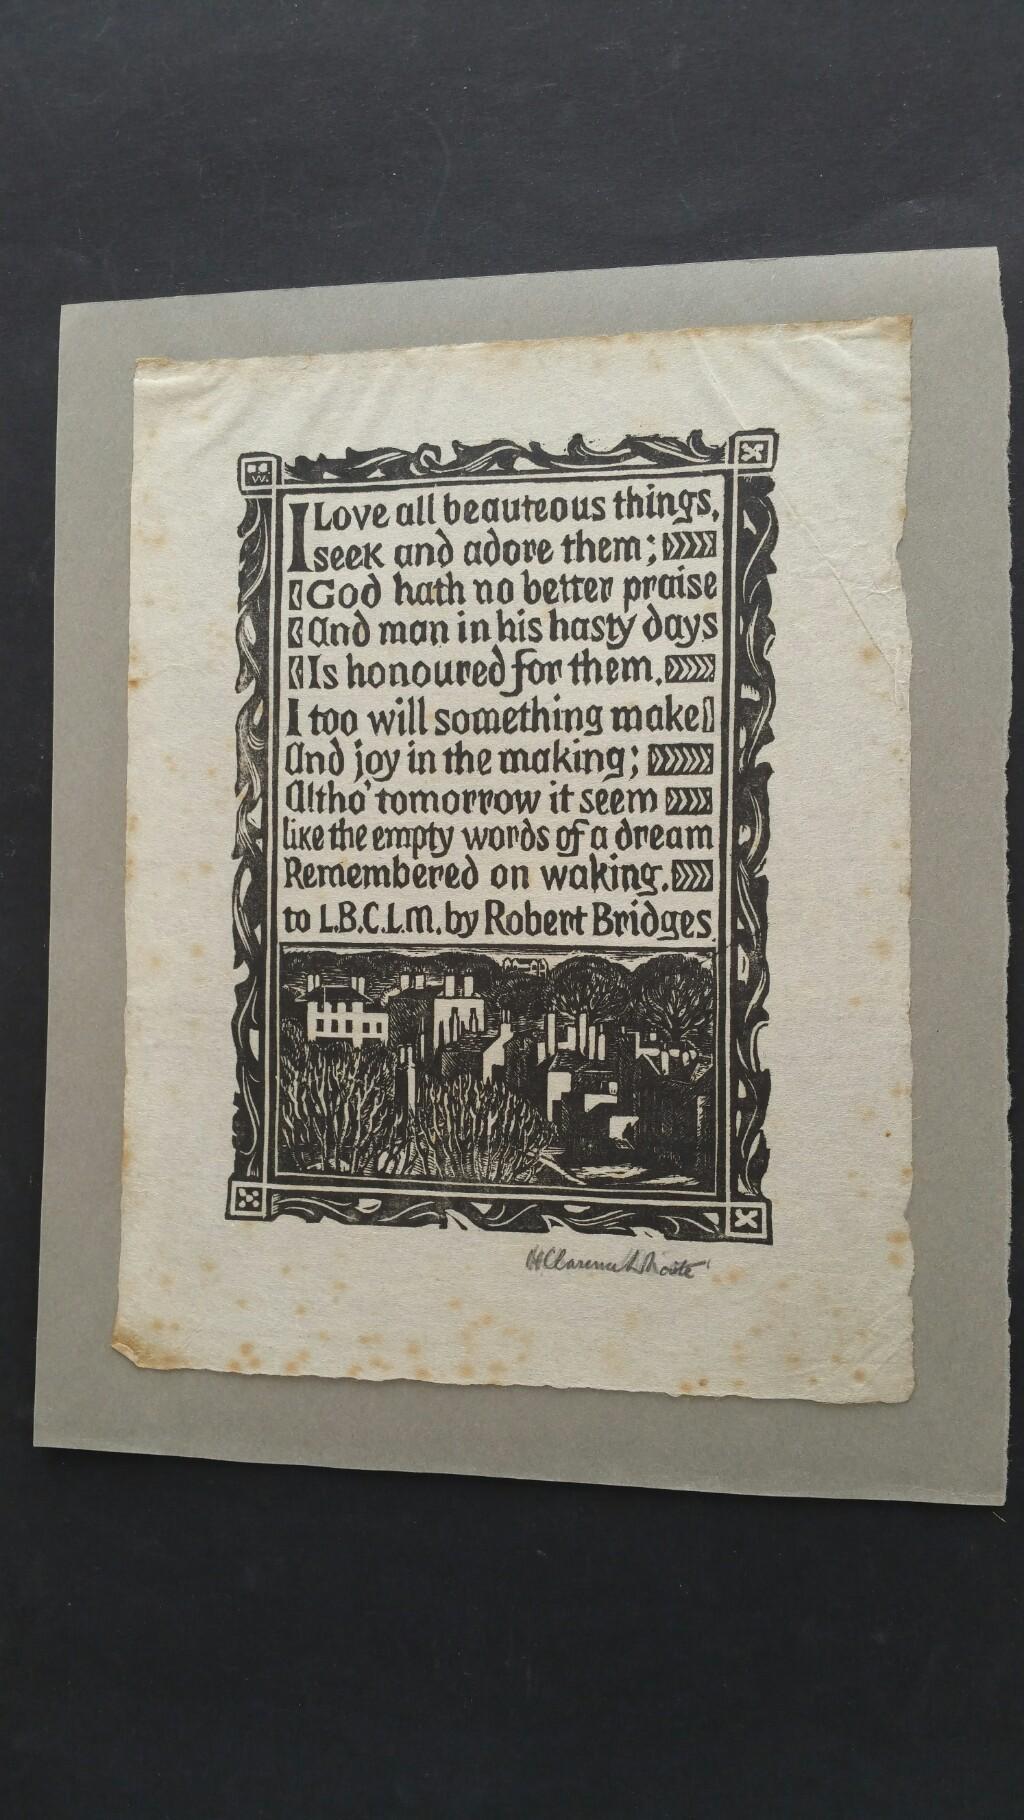 W.
I Love all beauteous things,
seek and adore them;
God hath no better praise
And man in his hasty days
Is honoured for them.
I too will something make
And joy in the making;
Altho' tomorrow it seem
like the empty words of a dream
Remembered on waking.
to L.B.C.L.M. by Robert Bridges.
H Clarence Whaite